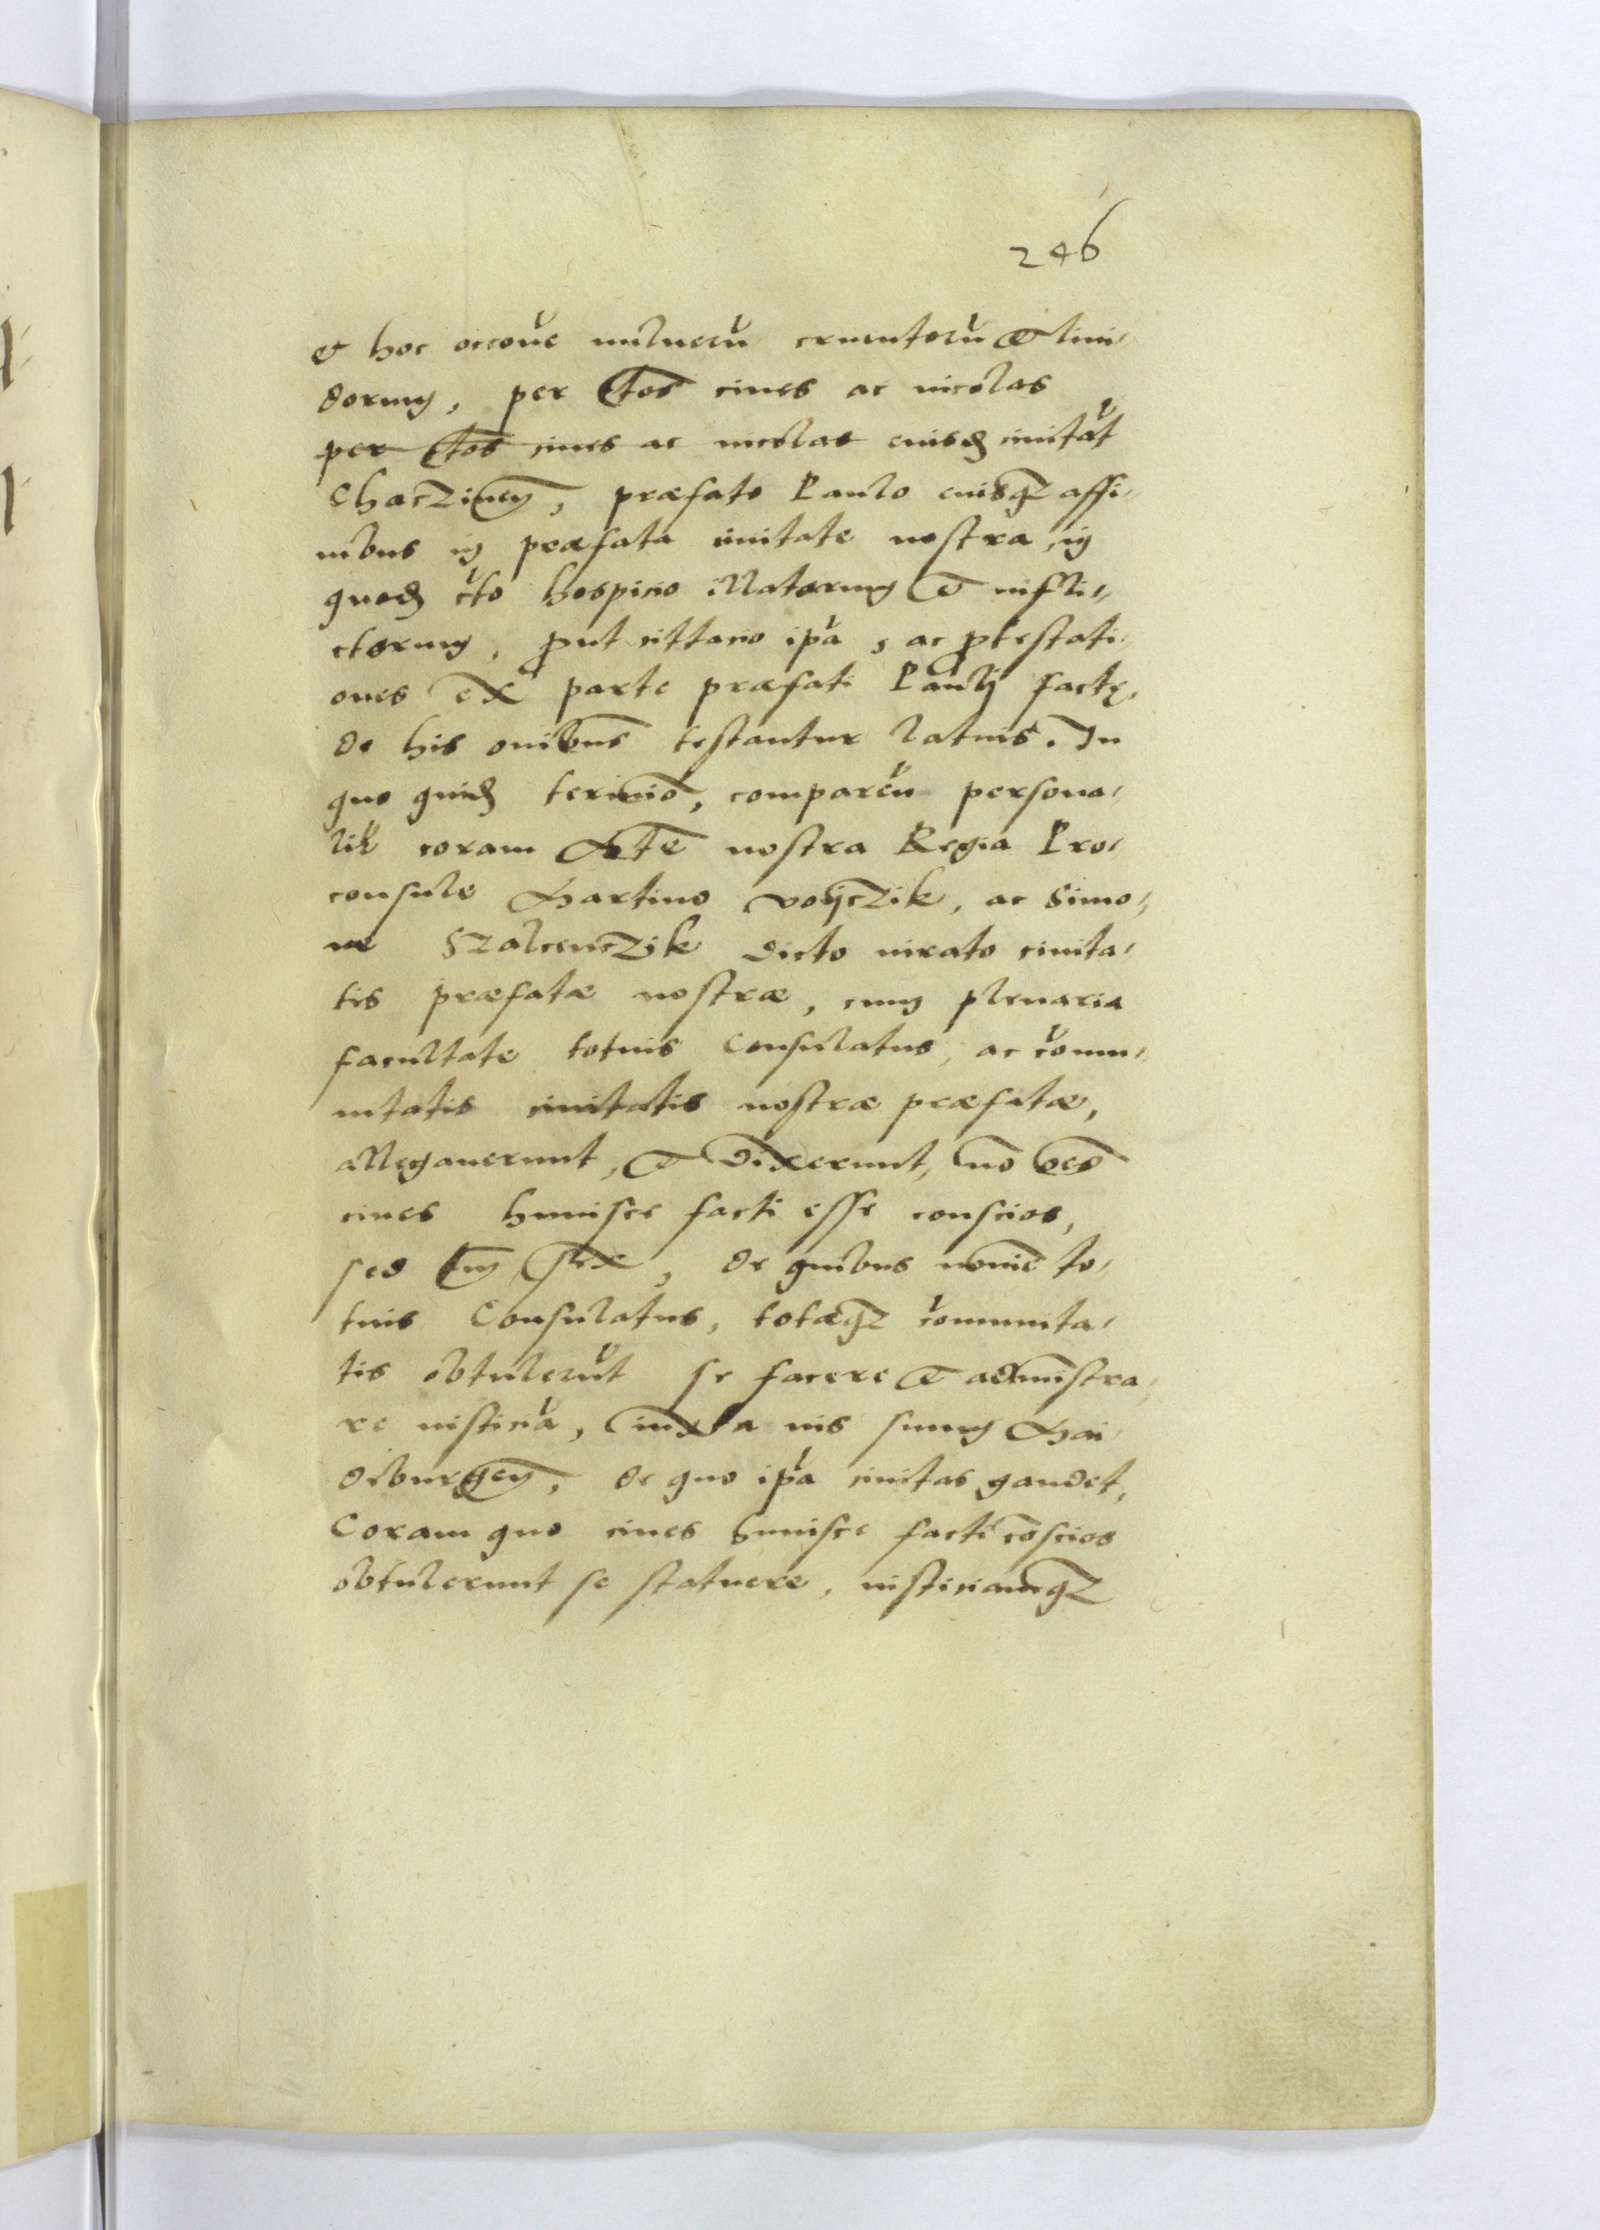 246
et hoc occoe̅ vulnerū cruentorū et livi-
dorum, per ctos̅ cives ac incolas
per ctos̅ cives ac incolas eiusd civitāt
Chaczinen̅, præfato Paulo eiusqz affi-
nibus in præfata civitate nostra in
quod cto̅ hospicio illatorum et infli-
ctorum, put cittacio ipā, ac ptestati
ones ex parte præfati Paulj factę,
de his oīnibus testantur latius. In
quo quid termīo, comparēn persona-
lit̅ coram Mte̅ nostra Regia Pro-
consule Martino Voijczik, ac Simo-
ne Szalcenczik dicto iurato civita-
tis præfatæ nostræ, cum plenaria
facultate totius Consulatus, ac comu-
nitatis civitatis nostræ præfatæ,
allegaverunt, et dixerunt, no̅ oes̅
cives huiusce facti esse conscios,
sed tm̅ sex, de quibus noīe to-
tius Consulatus, totæqz comunita-
tis obtulerūt se facere et administra-
re iusticiā, iuxta ius suum Mai-
deburgen̅, de quo ipā civitas gaudet,
Coram quo cives huiusce facti co̅scios
obtulerunt se statuere, iusticiamqz